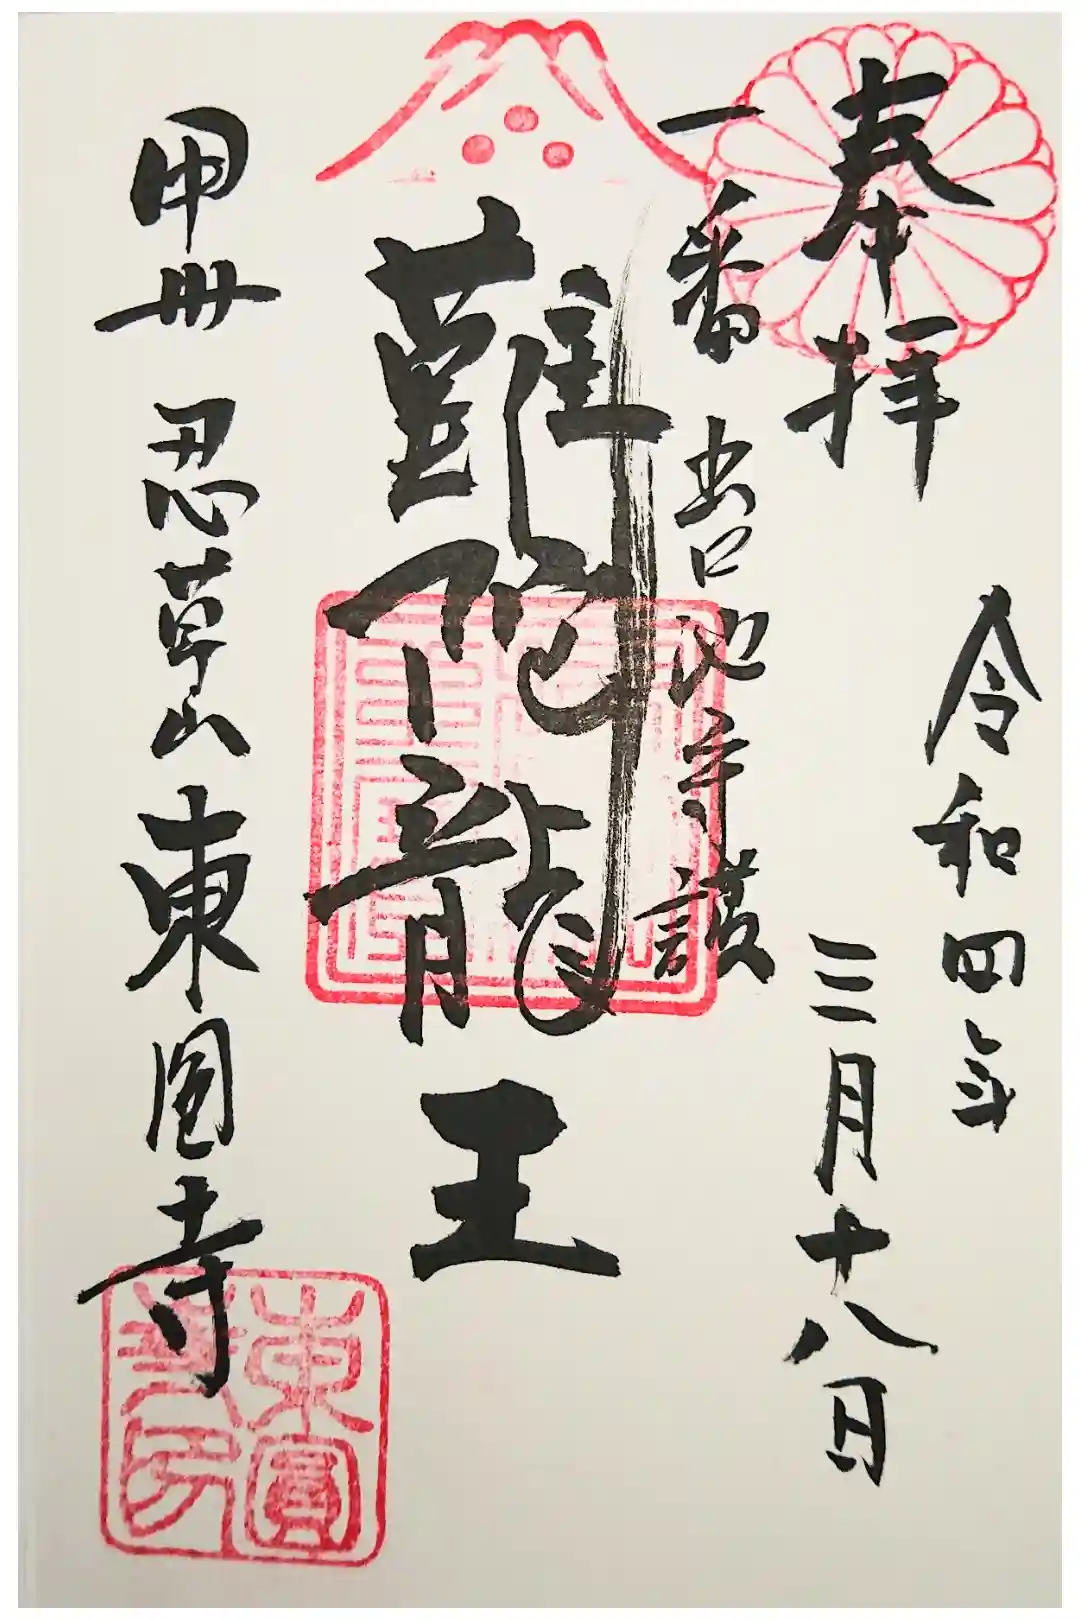 奉拝
令和四年
三月十八日
一番 出口池守護
難陀龍王
甲州 忍草山 東圓寺
東圓寺印